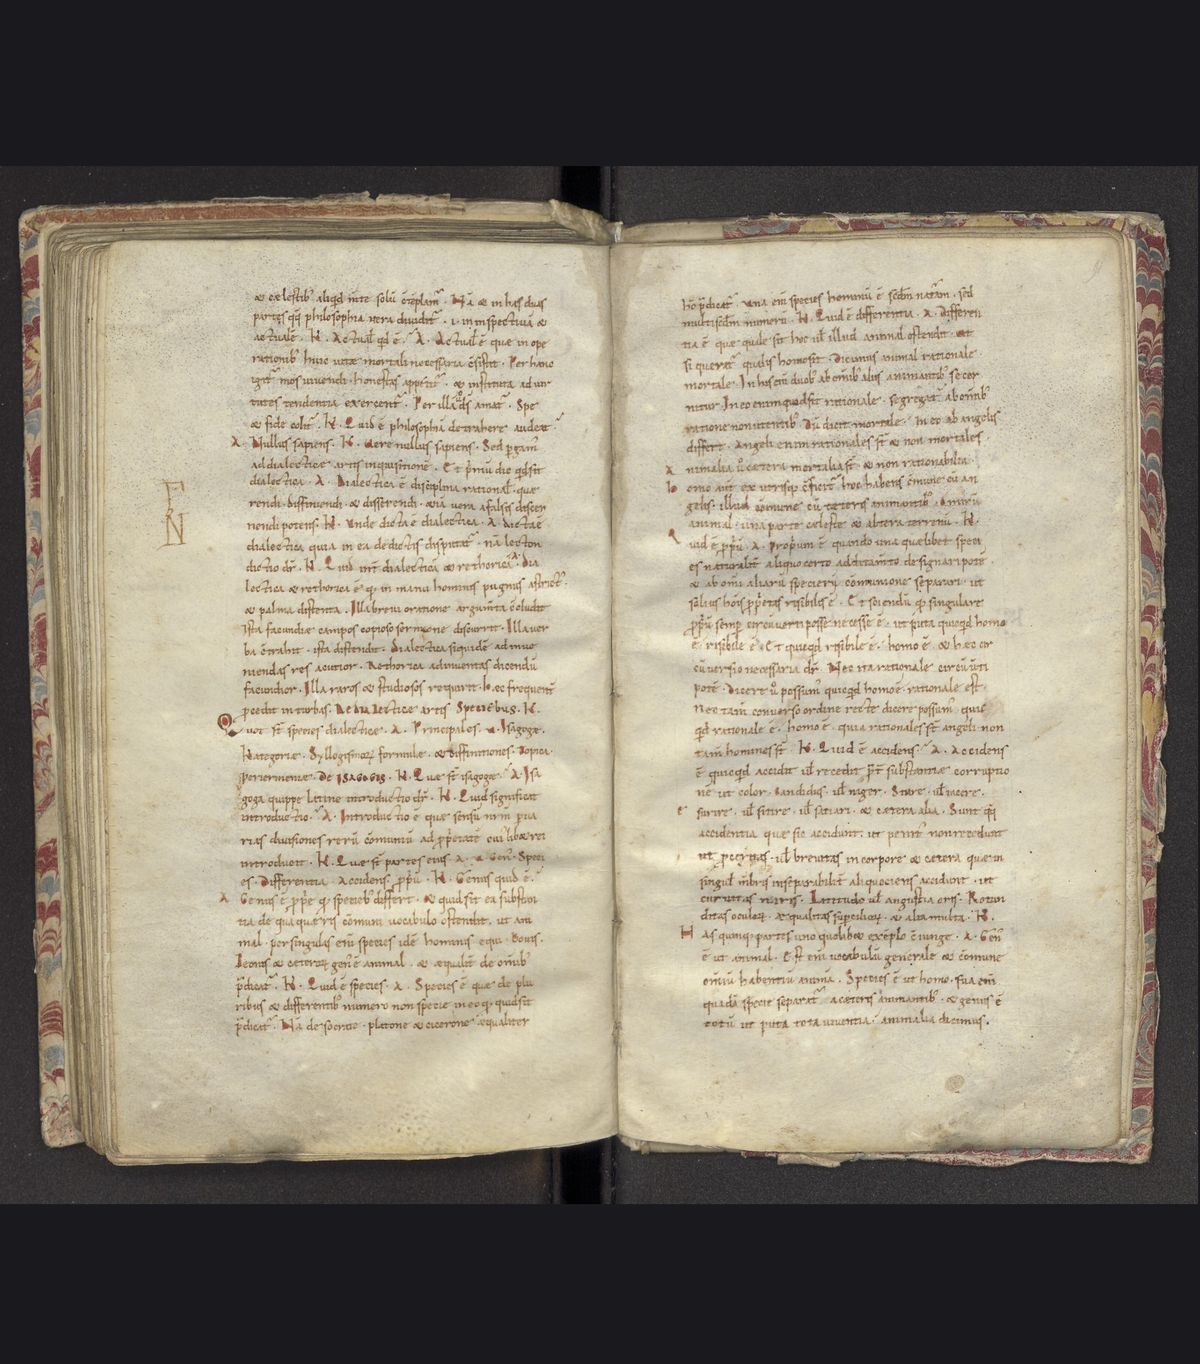 & cęlestib; aliqd inte solū c̄teplam̄ · Nā & in has duas
partes qq; philosophia uera diuidit̄ · i · in inspectiuā &
actualē · K · Actuał qd ē · A · Actualē ē quę in ope
rationib; huic uitę mortali necessaria c̄sistit · Per hanc
igit̄ mos uiuendi honestas appetit̄ · & instituta ad uir
tutes tendentia exercent̄ · Per illā ds̄ amat̄ · Spe
& fide colit̄ · K · Quid ē philosophia detrahere audeat
A · Nullus sapiens · K · uere nullus sapiens · Sed pgam̄
ad dialecticę artis inquisitionē · Et primū dic qd sit
dialectica · A · Dialectica ē disciplina rational · quę
rendi · diffiniendi · & disserendi · &iā uera a falsis discer
nendi potens · K · Unde dicta ē dialectica · A · dicta ē
dialectica quia in ea de dictis disputat̄ · nā lecton
dictio dr̄ · K · Quid int̄ dialectica & rethoricā · Dia
lectica & rethorica ē qd in manu hominis pugnus astrict;
& palma distenta · Illa breui oratione argum̄ta c̄cludit
Ista facundię campos copioso sermone discurrit · Illa uer
ba c̄trahit · ista distendit · Dialectica siquidē ad inue
niendas res acutior · Rethorica ad inuentas dicendū
facundior · Illa raros & studiosos requirit · h̨ec frequent̄
pcedit in turbas · De dialecticę artis Speciebus · K ·
Quot st̄ species dialecticę · A · Principales · u · Isagogę ·
Kategorię · Syllogismoꝝ formulę · & diffinitiones · Topica ·
periermenię · De ISAGOGIS · K · Quę st̄ isagogę · A · Isa
goga quippe latine introductio dr̄ · K · Quid significat
introductio · A · Introductio ē quę sensū nr̄m p ua
rias diuisiones rerū cōmuniū ad pprietatē cuilib& rei
introducit · K · Quę st̄ partes eius · A · u · Gen; · Speci
es · Differentia · Accidens · ppriū · K · Genus quid ē ·
A Genus ē pp̄e qd specieb; differt · & quid sit ea substan
tia de qua quęris cōmuni uocabulo ostendit · ut ani
mal · por singulas eni species idē hominis equi · bouis ·
leonis & ceteroꝝ gen; ē animal · & ęqualit̄ de omib;
pdicat̄ · K · Quid ē species · A · Species ē quę de plu
ribus & differentib; numero non specie in eo qd quid sit
pdicat̄ · Nā de socrate · platone & cicerone ęqualiter
F
N
hō pdicat̄ · una eni species hominū ē scdm̄ naturam · sed
multi scdm̄ numerū · K · Quid ē differentia · A · Differen
tia ē quę quale sit hoc ul̄ illud animal ostendit · ut
si querat̄ qualis homo sit · Dicimus animal rationale
mortale · In his eni duob; ab omib; aliis animantib; secer
nitur · In eo enim quod sit rationale · segregat̄ ab omib;
ratione non utentib; · Dū dicit mortale · in eo ab angelis
differt · Angeli enim rationales st̄ & non mortales ·
A nimalia u̇ cętera mortalia st̄ & non rationabilia ·
h omo aut̄ ex utrisq; c̄ficit̄ hoc habens c̄mune cū an
gelis · illud cōmune cū cęteris animantib; · Diuinū
animal · una parte cęleste & altera terrenū · K ·
Q uid ē ppriū · A · Propriū ē quando una quęlibet speci
es naturalit̄ aliquo certo additam̄to designari pote
& ab omi aliarū specierū cōmunione separari · ut
solius hōis pprietas risibilis ē · Et sciendū qd singulare
ppriū semp circūuerti posse necesse ē · ut puta quicqd homo
ē · risibile ē · Et quicqd risibile ē · homo ē · & hęc cir
cūuersio necessaria dr̄ · Nec ita rationale circūuti
pote · Dicere u̇ possum; quicqd homo ē · rationale est ·
nec tam̄ conuerso ordine recte dicere possum; quic
qd rationale ē · homo ē · quia rationales st̄ angeli non
tam̄ homines st̄ · K · Quid ē accidens · A · Accidens
ē quicqd accidit ul̄ recedit pt̄ substantię corruptio
nē ut color · Candidus · ul̄ niger · Stare · ul̄ iacere ·
e surire · ul̄ sitire · ul̄ satiari · & cętera alia · Sunt qd̄
accidentia quę sic accidunt · ut penit; non recedant
ut pceritas · ul̄ breuitas in corpore & cętera quę in
singul̄ m̄bris inseparabilit̄ aliquociens accidunt · ut
curuitas naris · Latitudo ul̄ angustia oris · Rotun
ditas oculoꝝ · & qualitas superciliorꝝ · & alia multa · K ·
H as quinq; partes uno quolib& exēplo c̄iunge · A · Gen;
ē ut animal · Est eni uocabulū generale & cōmune
omiū habentiū animā · Species ē ut homo · sua eni
quadā specie separat̄ a cęteris animantib; · & genus ē
totū ut puta tota uiuentia · animalia dicimus ·